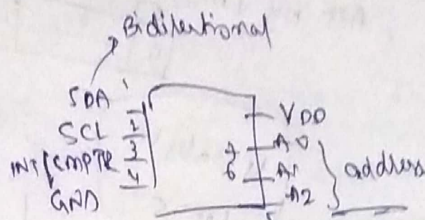 Bidirectional
SDA 1
SCL 2
INT/CMPTR 3
GND 4
VDD
7 A0
6 A1
A2
address